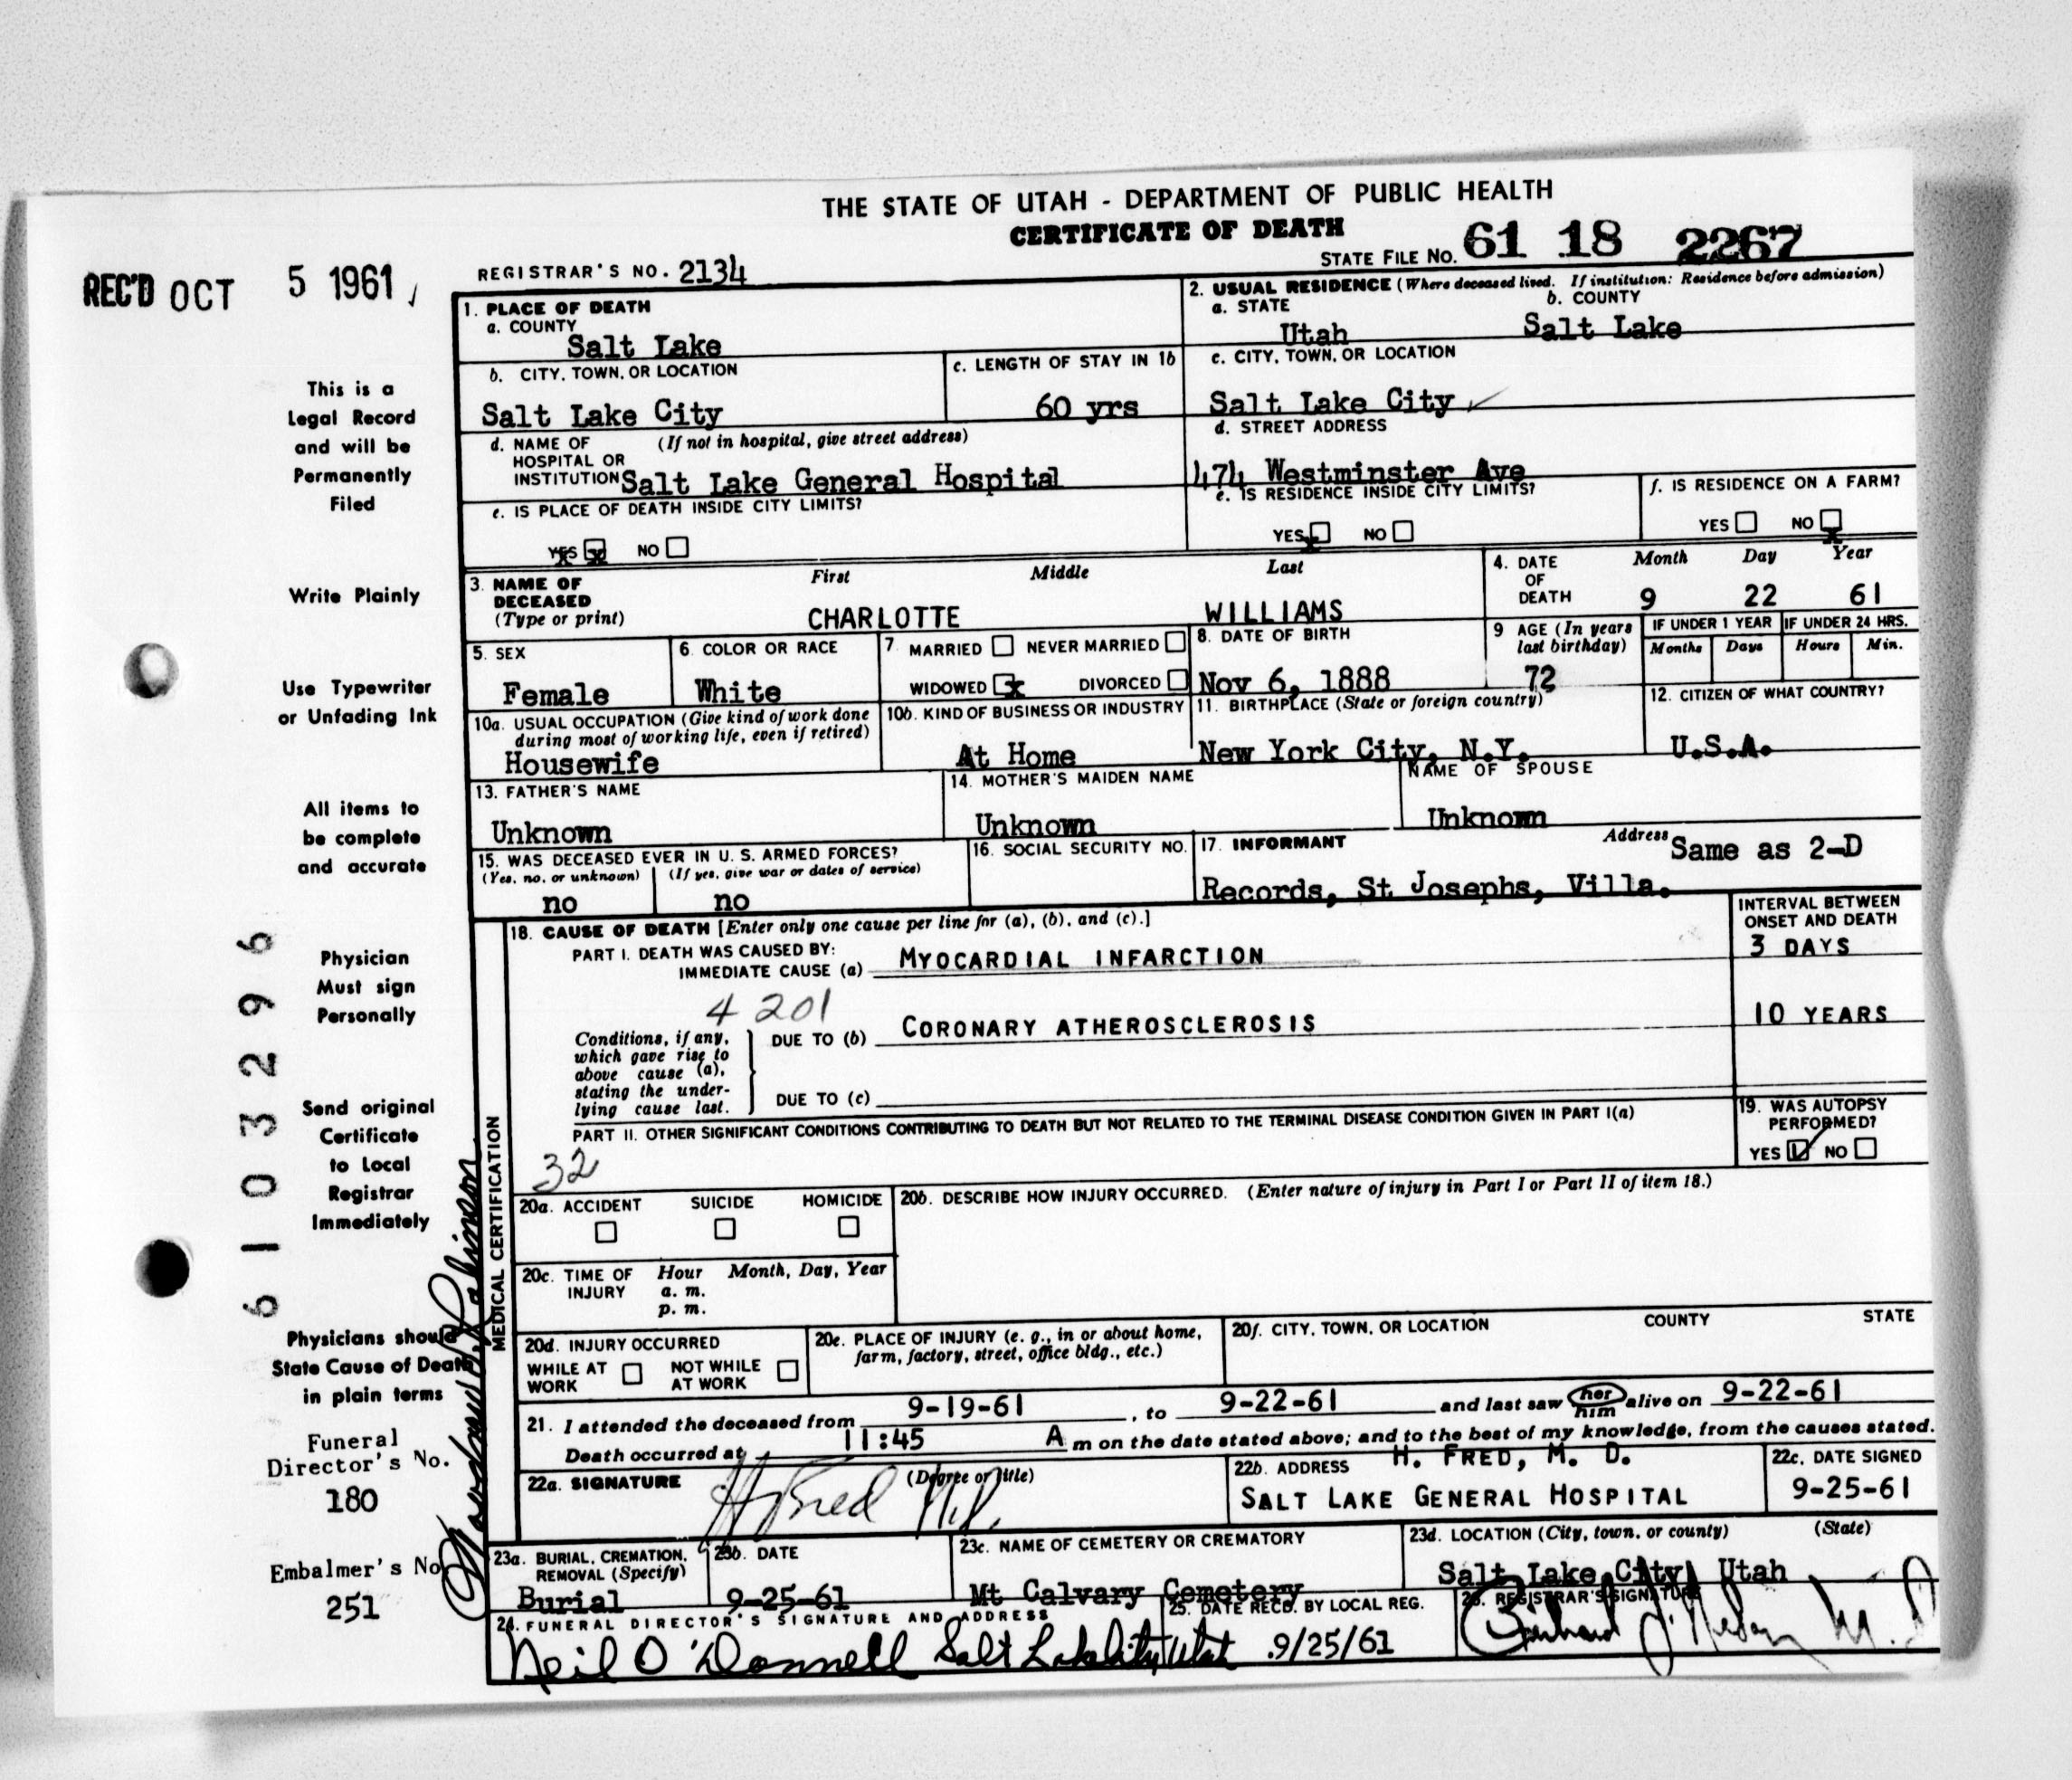 THE STATE OF UTAH - DEPARTMENT OF PUBLIC HEALTH
CERTIFICATE OF DEATH
STATE FILE NO. 61 18 2267
REC'D OCT 5 1961
REGISTRAR'S NO. 2134
This is a
Legal Record
and will be
Permanently
Filed
Write Plainly
Use Typewriter
or Unfading Ink
All items to
be complete
and accurate
Physician
Must sign
Personally
Send original
Certificate
to Local
Registrar
Immediately
Physicians should
State Cause of Death
in plain terms
Funeral
Director's No.
180
Embalmer's No
251
6103296
1. PLACE OF DEATH
a. COUNTY
Salt Lake
2. USUAL RESIDENCE (Where deceased lived. If institution: Residence before admission)
a. STATE b. COUNTY
Utah Salt Lake
b. CITY, TOWN, OR LOCATION
Salt Lake City
c. LENGTH OF STAY IN 1b
60 yrs
c. CITY, TOWN, OR LOCATION
Salt Lake City
d. NAME OF (If not in hospital, give street address)
HOSPITAL OR
INSTITUTION Salt Lake General Hospital
d. STREET ADDRESS
474 Westminster Ave
e. IS PLACE OF DEATH INSIDE CITY LIMITS?
YES x NO
e. IS RESIDENCE INSIDE CITY LIMITS?
YES x NO
f. IS RESIDENCE ON A FARM?
YES NO x
3. NAME OF
DECEASED
(Type or print)
First Middle Last
CHARLOTTE WILLIAMS
4. DATE
OF
DEATH
Month Day Year
9 22 61
5. SEX
Female
6. COLOR OR RACE
White
7. MARRIED NEVER MARRIED
WIDOWED x DIVORCED
8. DATE OF BIRTH
Nov 6, 1888
9 AGE (In years
last birthday)
72
IF UNDER 1 YEAR IF UNDER 24 HRS.
Months Days Hours Min.
10a. USUAL OCCUPATION (Give kind of work done
during most of working life, even if retired)
Housewife
10b. KIND OF BUSINESS OR INDUSTRY
At Home
11. BIRTHPLACE (State or foreign country)
New York City, N.Y.
12. CITIZEN OF WHAT COUNTRY?
U.S.A.
13. FATHER'S NAME
Unknown
14. MOTHER'S MAIDEN NAME
Unknown
NAME OF SPOUSE
Unknown
15. WAS DECEASED EVER IN U. S. ARMED FORCES?
(Yes, no, or unknown) (If yes, give war or dates of service)
no no
16. SOCIAL SECURITY NO.
17. INFORMANT Address Same as 2-D
Records, St Josephs, Villa.
MEDICAL CERTIFICATION
18. CAUSE OF DEATH [Enter only one cause per line for (a), (b), and (c).]
INTERVAL BETWEEN
ONSET AND DEATH
PART I. DEATH WAS CAUSED BY:
IMMEDIATE CAUSE (a) MYOCARDIAL INFARCTION 3 DAYS
4 201
Conditions, if any,
which gave rise to
above cause (a),
stating the under-
lying cause last.
DUE TO (b) CORONARY ATHEROSCLEROSIS 10 YEARS
DUE TO (c)
PART II. OTHER SIGNIFICANT CONDITIONS CONTRIBUTING TO DEATH BUT NOT RELATED TO THE TERMINAL DISEASE CONDITION GIVEN IN PART I(a)
32
19. WAS AUTOPSY
PERFORMED?
YES NO
20a. ACCIDENT SUICIDE HOMICIDE
20b. DESCRIBE HOW INJURY OCCURRED. (Enter nature of injury in Part I or Part II of item 18.)
20c. TIME OF Hour Month, Day, Year
INJURY a. m.
p. m.
20d. INJURY OCCURRED
WHILE AT NOT WHILE
WORK AT WORK
20e. PLACE OF INJURY (e. g., in or about home,
farm, factory, street, office bldg., etc.)
20f. CITY, TOWN, OR LOCATION COUNTY STATE
21. I attended the deceased from 9-19-61, to 9-22-61 and last saw her him alive on 9-22-61
Death occurred at 11:45 A m on the date stated above; and to the best of my knowledge, from the causes stated.
22a. SIGNATURE (Degree or title)
H Fred M.D.
22b. ADDRESS H. FRED, M. D.
SALT LAKE GENERAL HOSPITAL
22c. DATE SIGNED
9-25-61
23a. BURIAL, CREMATION,
REMOVAL (Specify)
Burial
23b. DATE
9-25-61
23c. NAME OF CEMETERY OR CREMATORY
Mt Calvary Cemetery
23d. LOCATION (City, town, or county) (State)
Salt Lake City, Utah
24. FUNERAL DIRECTOR'S SIGNATURE AND ADDRESS
Neil O'Donnell Salt Lake City Utah
25. DATE RECD. BY LOCAL REG.
9/25/61
26. REGISTRAR'S SIGNATURE
M.D